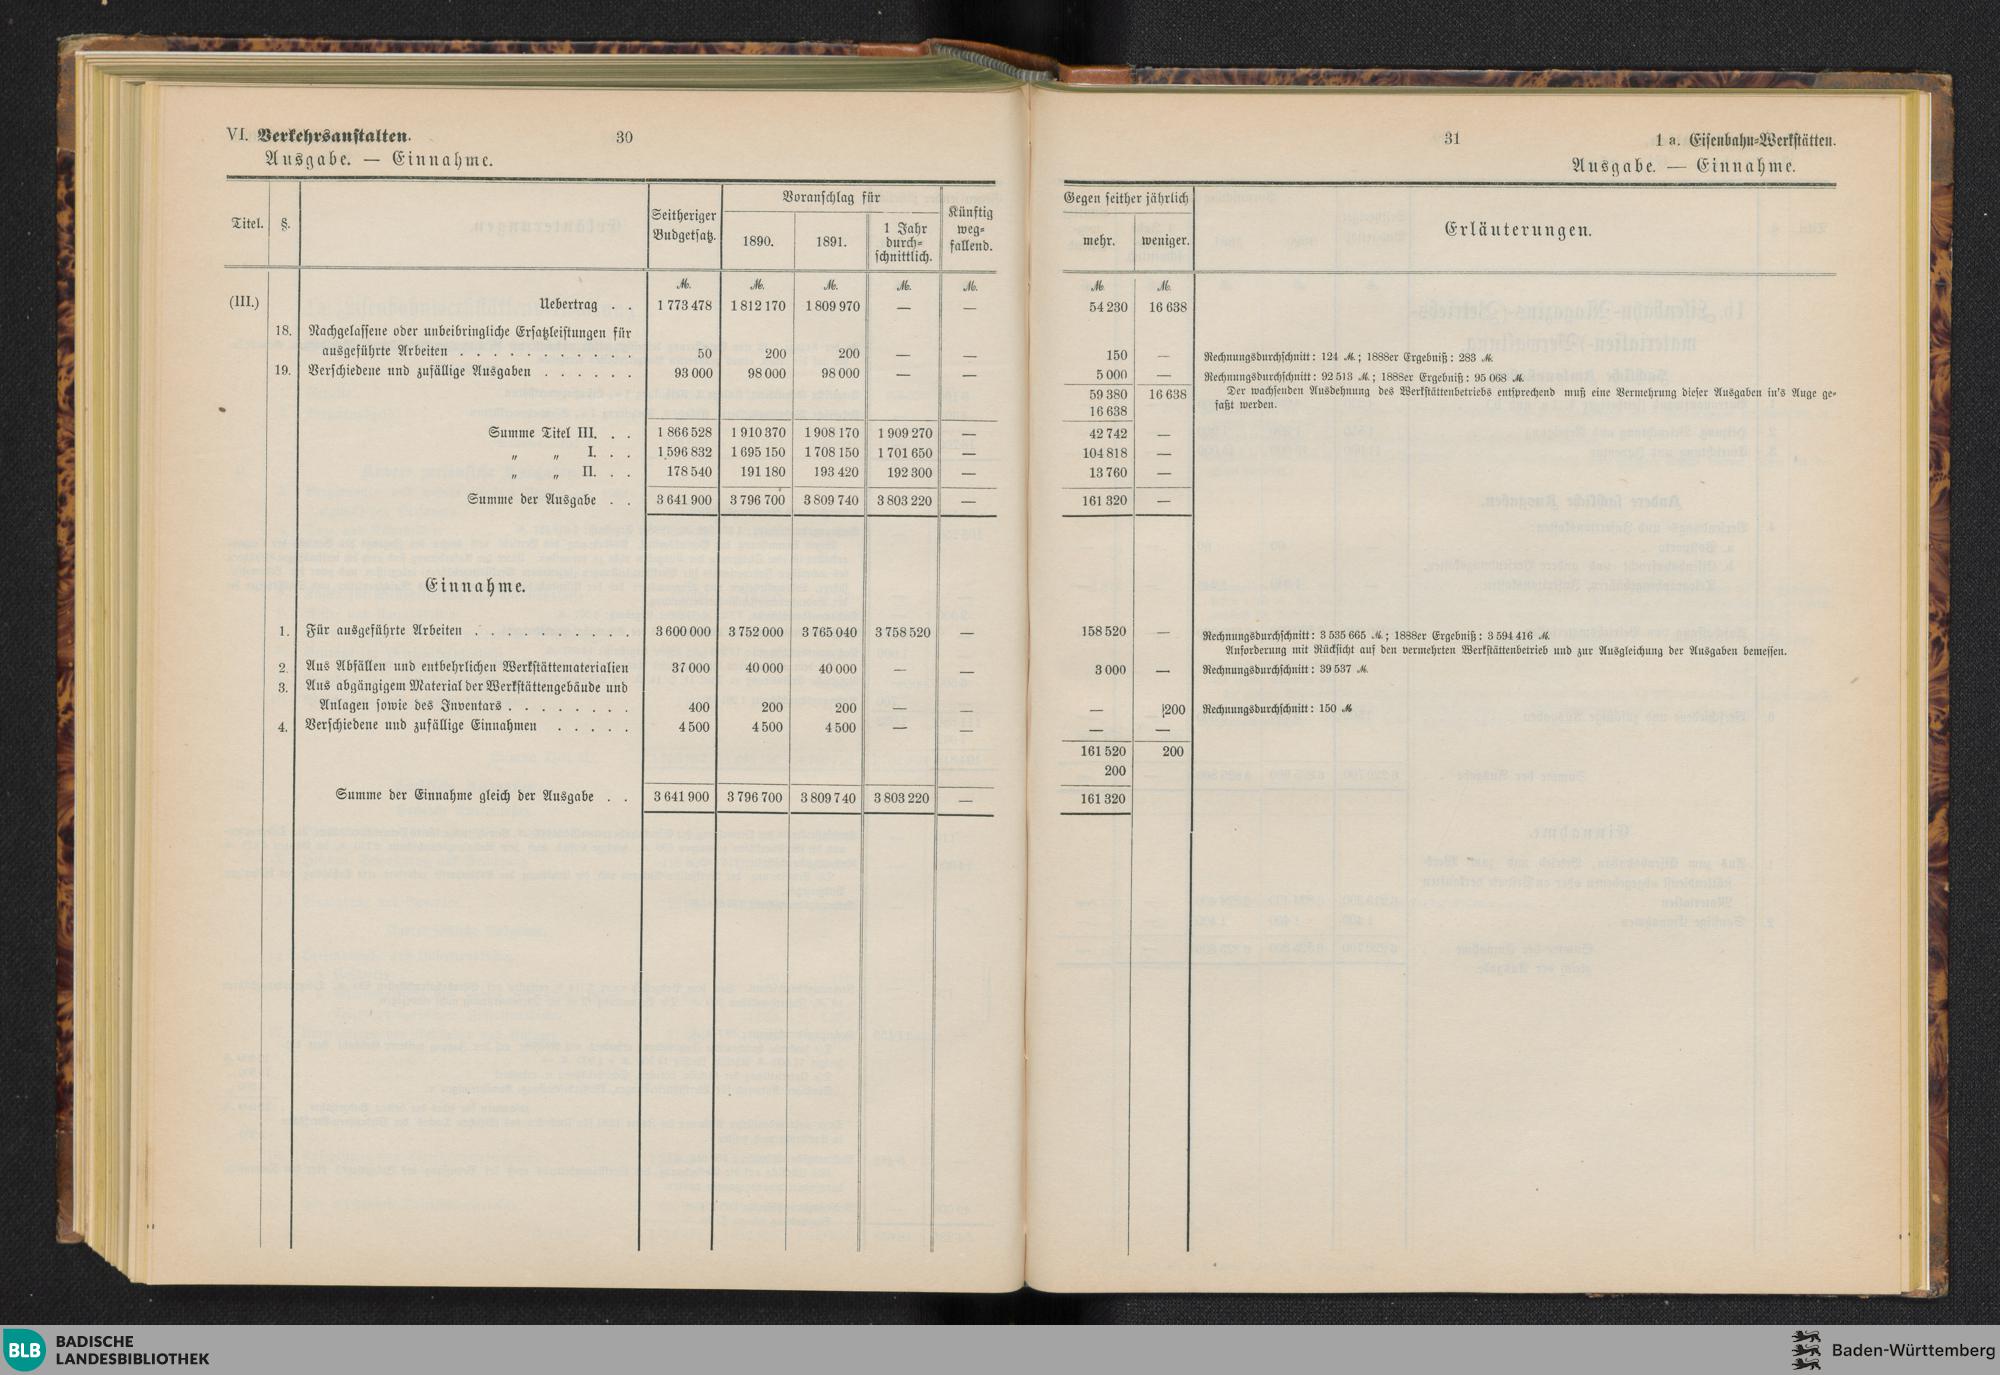 VI. Verkehrsanstalten. 30
Ausgabe. — Einnahme.
Titel. §. Seitheriger Budgetsatz. Voranschlag für 1890. 1891. 1 Jahr durch- schnittlich. Künftig weg- fallend.
ℳ. ℳ. ℳ. ℳ. ℳ.
(III.) Uebertrag . . 1 773 478 1 812 170 1 809 970 — —
18. Nachgelassene oder unbeibringliche Ersatzleistungen für
ausgeführte Arbeiten . . . . . . . . . . . 50 200 200 — —
19. Verschiedene und zufällige Ausgaben . . . . . . 93 000 98 000 98 000 — —
Summe Titel III. . . 1 866 528 1 910 370 1 908 170 1 909 270 —
„ „ I. . . 1 596 832 1 695 150 1 708 150 1 701 650 —
„ „ II. . . 178 540 191 180 193 420 192 300 —
Summe der Ausgabe . . 3 641 900 3 796 700 3 809 740 3 803 220 —
Einnahme.
1. Für ausgeführte Arbeiten . . . . . . . . . . 3 600 000 3 752 000 3 765 040 3 758 520 —
2. Aus Abfällen und entbehrlichen Werkstättematerialien 37 000 40 000 40 000 — —
3. Aus abgängigem Material der Werkstättengebäude und
Anlagen sowie des Inventars . . . . . . . . 400 200 200 — —
4. Verschiedene und zufällige Einnahmen . . . . . 4 500 4 500 4 500 — —
Summe der Einnahme gleich der Ausgabe . . 3 641 900 3 796 700 3 809 740 3 803 220 —
31 1 a. Eisenbahn-Werkstätten.
Ausgabe. — Einnahme.
Gegen seither jährlich mehr. weniger. Erläuterungen.
ℳ. ℳ.
54 230 16 638
150 — Rechnungsdurchschnitt: 124 ℳ.; 1888er Ergebniß: 283 ℳ.
5 000 — Rechnungsdurchschnitt: 92 513 ℳ.; 1888er Ergebniß: 95 068 ℳ.
59 380 16 638 Der wachsenden Ausdehnung des Werkstättenbetriebs entsprechend muß eine Vermehrung dieser Ausgaben in's Auge ge-
16 638 faßt werden.
42 742 —
104 818 —
13 760 —
161 320 —
158 520 — Rechnungsdurchschnitt: 3 535 665 ℳ.; 1888er Ergebniß: 3 594 416 ℳ.
Anforderung mit Rücksicht auf den vermehrten Werkstättenbetrieb und zur Ausgleichung der Ausgaben bemessen.
3 000 — Rechnungsdurchschnitt: 39 537 ℳ.
— 200 Rechnungsdurchschnitt: 150 ℳ
— —
161 520 200
200
161 320
BLB BADISCHE
LANDESBIBLIOTHEK
Baden-Württemberg